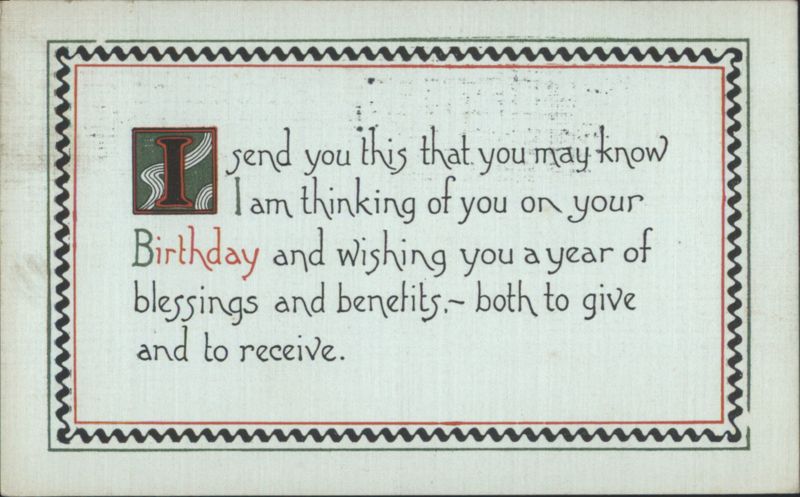 I send you this that you may know
I am thinking of you on your
Birthday and wishing you a year of
blessings and benefits,~ both to give
and to receive.